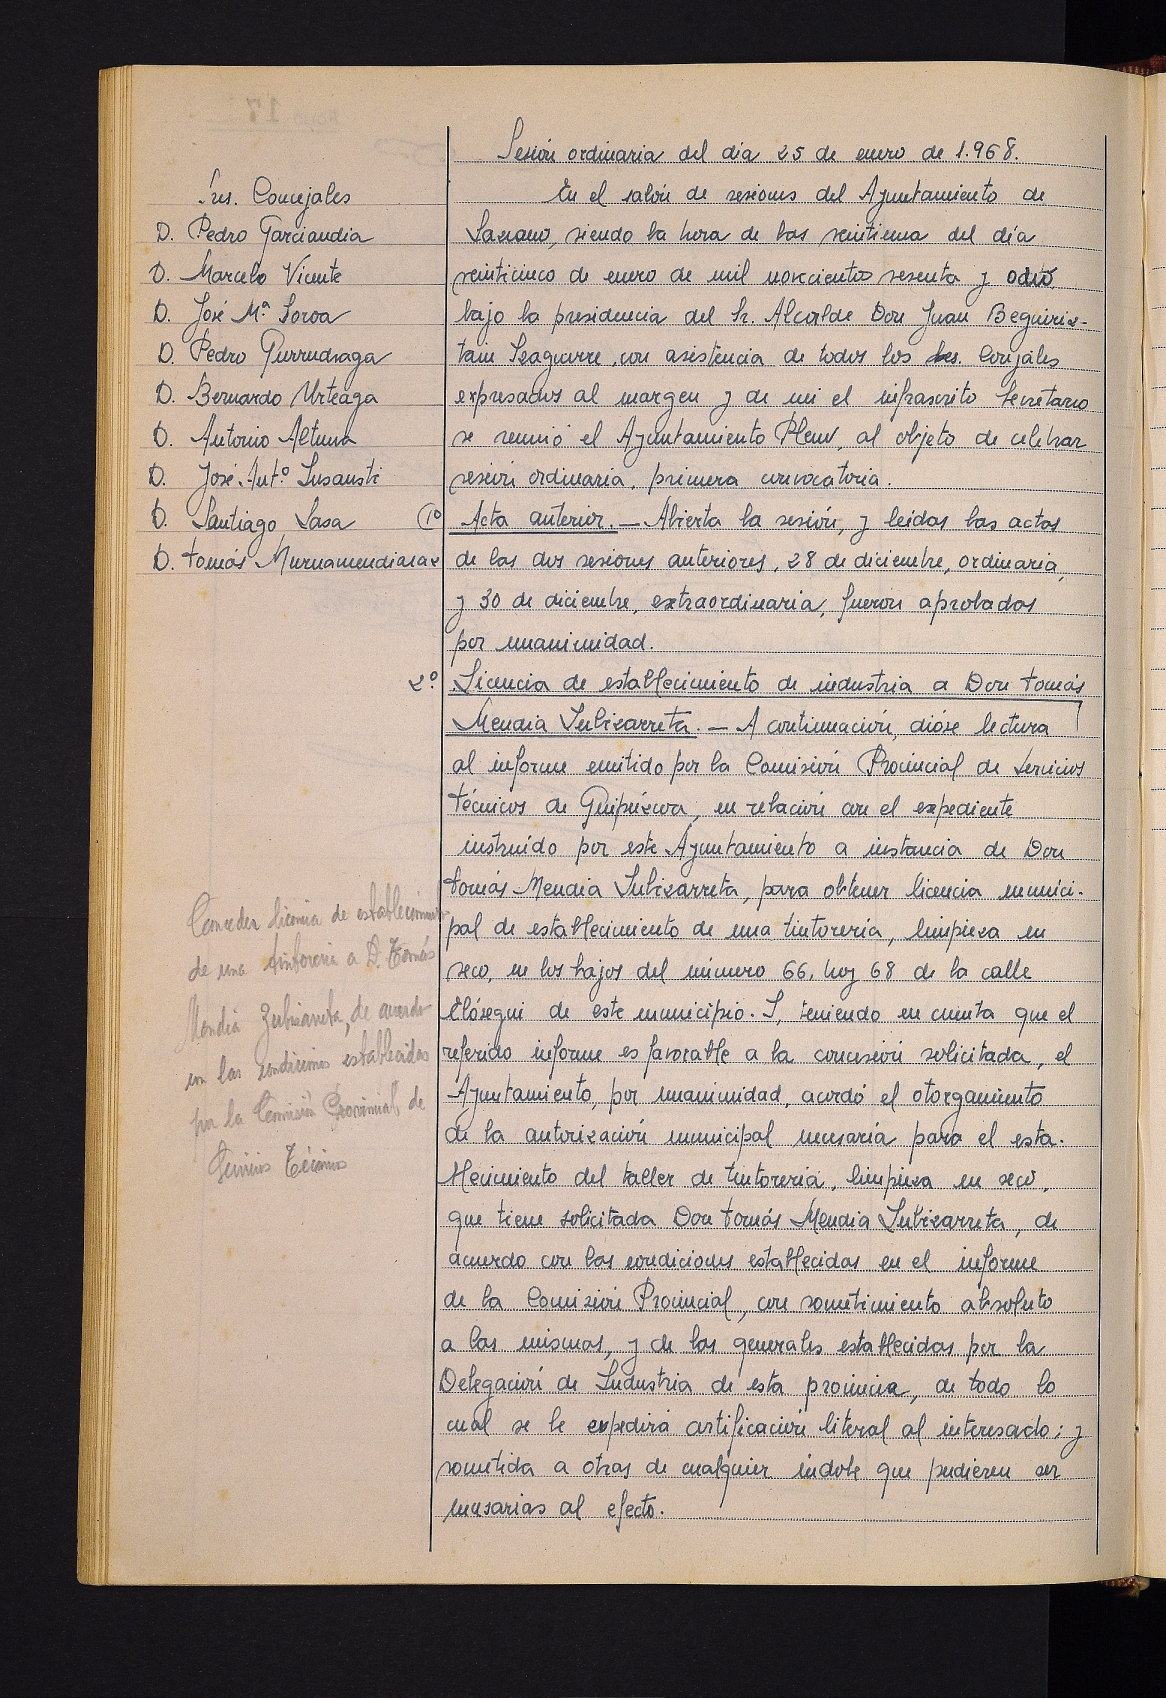 Sesión ordinaria del día 25 de enero de 1.968.
Sres. Concejales
D. Pedro Garciandia
D. Marcelo Vicente
D. José Mª Soroa
D. Pedro Gurrudxaga
D. Bernardo Urteaga
D. Antonio Altuna
D. José Antº Susausti
D. Santiago Sasa
D. Tomás Murnamendiaraz
En el salón de sesiones del Ayuntamiento de
Lazcano, siendo la hora de las veintiuna del día
veinticinco de enero de mil novecientos sesenta y ocho
bajo la presidencia del Sr. Alcalde Don Juan Beguiris-
tain Izaguirre, con asistencia de todos los Sres. Concejales
expresados al margen y de mi el infrascrito Secretario
se reunió el Ayuntamiento Pleno, al objeto de celebrar
sesión ordinaria, primera convocatoria.
1º Acta anterior. — Abierta la sesión, y leidas las actas
de las dos sesiones anteriores, 28 de diciembre, ordinaria,
y 30 de diciembre, extraordinaria, fueron aprobadas
por unanimidad.
2º. Licencia de establecimiento de industria a Don Tomás
Mendia Zubizarreta. — A continuación, dióse lectura
al informe emitido por la Comisión Provincial de Servicios
Técnicos de Guipúzcoa, en relación con el expediente
instruído por este Ayuntamiento a instancia de Don
Tomás Mendia Zubizarreta, para obtener licencia munici-
pal de establecimiento de una tintorería, limpieza en
seco, en los bajos del número 66, hoy 68 de la calle
Elósegui de este municipio. Y, teniendo en cuenta que el
referido informe es favorable a la concesión solicitada, el
Ayuntamiento, por unanimidad, acordó el otorgamiento
de la autorización municipal necesaria para el esta-
blecimiento del taller de tintorería, limpieza en seco,
que tiene solicitada Don Tomás Mendia Zubizarreta, de
acuerdo con las condiciones establecidas en el informe
de la Comisión Provincial, con sometimiento absoluto
a las mismas, y de las generales establecidas por la
Delegación de Industria de esta provincia, de todo lo
cual se le expedirá certificación literal al interesado; y
sometida a otras de cualquier indole que pudieren ser
necesarias al efecto.
Conceder licencia de establecimiento
de una tintoreria a D. Tomás
Mendia Zubizarreta, de acuerdo
con las condiciones establecidas
por la Comisión Provincial de
Servicios Técnicos